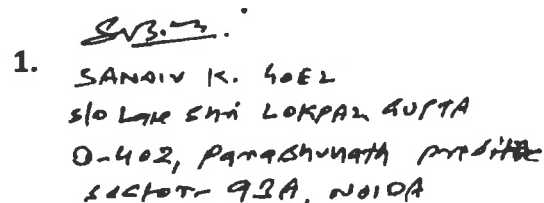 1.
SANJIV K. GOEL
S/o Late Shri LOKPAL GUPTA
D-402, Parasvnath prestige
sector- 93A, NOIDA